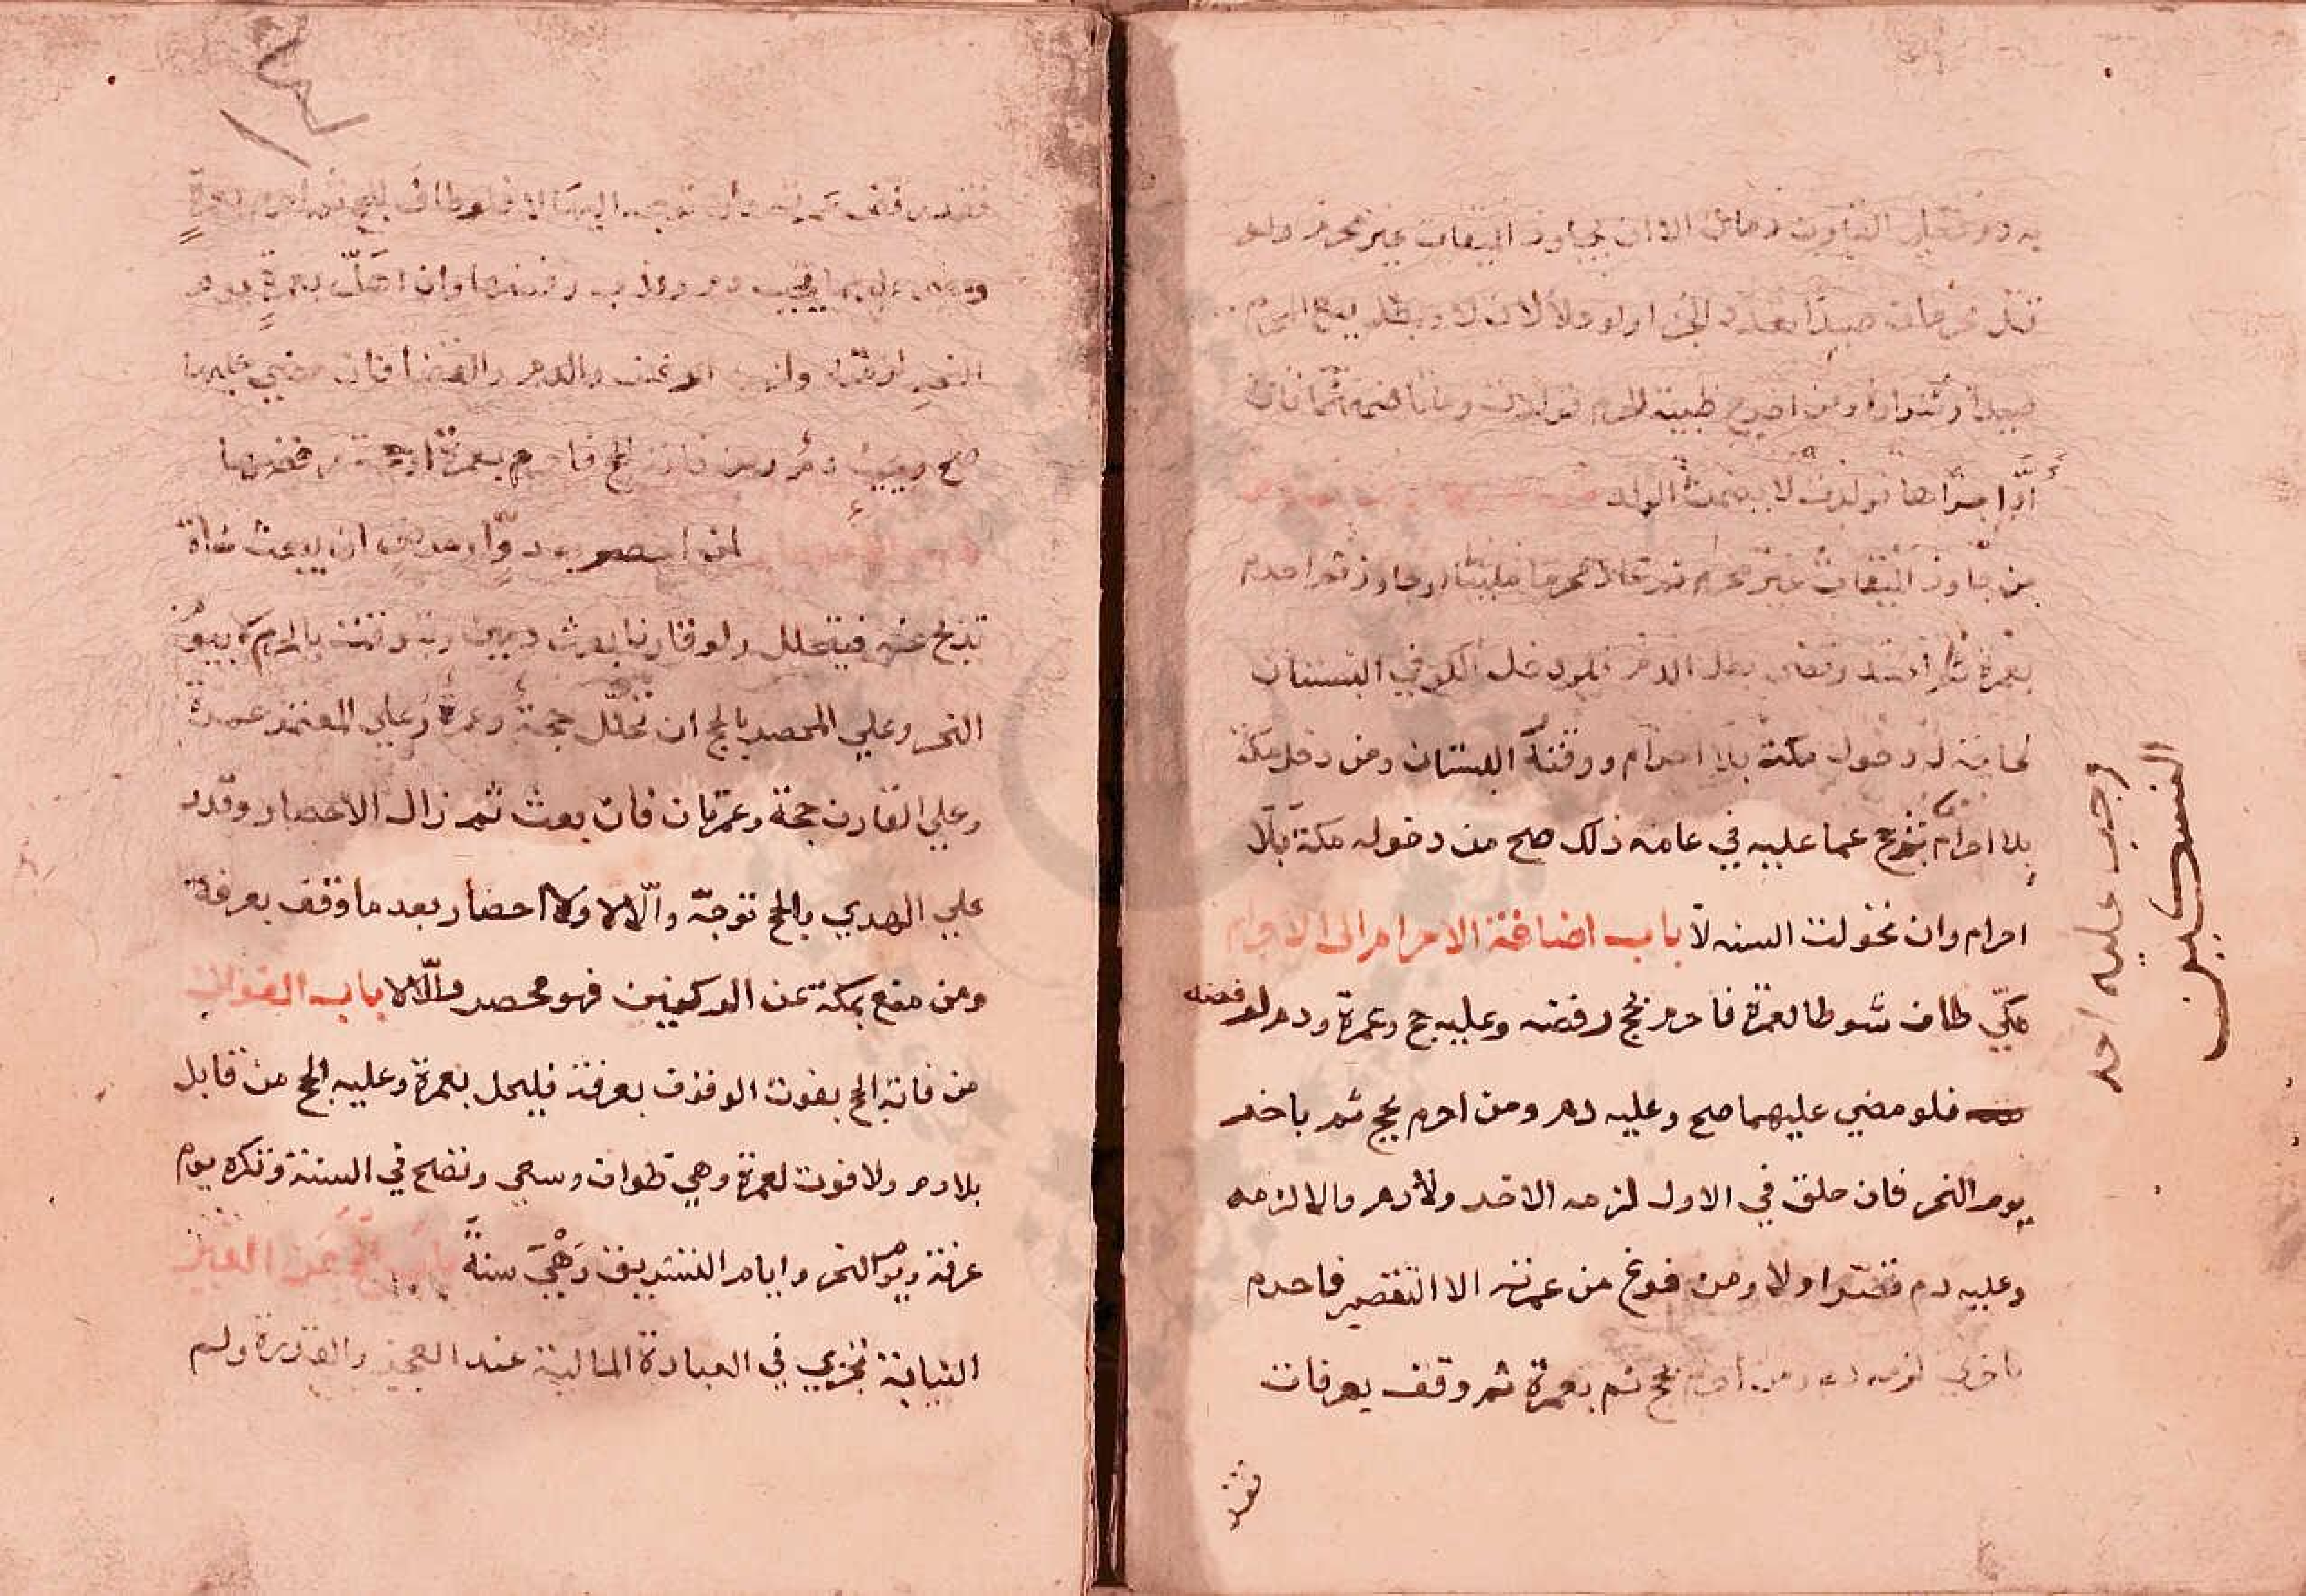 به دم فعلى القارن دمان الا ان يجاوز الميقات غير محرم ولو
قتل محرمان صيدا تعدد الجزا ولو حلالان لا وبطل بيع المحرم
صيدا وشراوه ومن اخرج ظبية الحرم فولدت وماتا ضمنهما فان
ادا جزاها فولدت لا يضمن الولد
من جاوز الميقات غير محرم ثم عاد محرما ملبيا او جاوز ثم احرم
بعمرة ثم افسد وقضى بطل الدم فلو دخل الكوفي البستان
لحاجة له دخول مكة بلا احرام ووقته البستان ومن دخل مكة
بلا احرام ثم حج عما عليه في عامه ذلك صح من دخوله مكة بلا
احرام وان تحولت السنه لا باب اضافة الاحرام الى الاحرام
مكي طاف شوطا لعمرة فاحرم بحج رفضه وعليه حج وعمرة ودم لرفضه
فلو مضي عليهما صح وعليه دم ومن احرم بحج ثم باخر
يوم النحر فان حلق في الاول لزمه الاخر ولا دم والا لزمه
وعليه دم قصر اولا ومن فرغ من عمرته الا التقصير فاحرم
باخرى لزمه دم ومن احرم بحج ثم بعمرة ثم وقف بعرفات
فقد
وجب عليه احد
النسكين
فقد رفض عمرته وان توجه اليها لا فلو طاف للحج ثم احرم بعمرة
ومضى عليهما يجب دم وندب رفضها وان اهل بعمرة يوم
النحر لزمته ولزمه الرفض والدم والقضا فان مضي عليها
صح ويجب دم ومن فاته الحج فاحرم بعمرة او حجة رفضها
لمن احصر بعدو او مرض ان يبعث شاة
تذبح عنه فيتحلل ولو قارنا بعث دمين ويتوقت بالحرم لا بيوم
النحر وعلي المحصر بالحج ان تحلل حجة وعمرة وعلي المعتمر عمرة
وعلي القارن حجة وعمرتان فان بعث ثم زال الاحصار وقدر
علي الهدي والحج توجه والا لا ولا احصار بعد ما وقف بعرفة
ومن منع بمكة عن الركنين فهو محصر والا لا باب الفوات
من فاته الحج بفوت الوقوف بعرفة فليحل بعمرة وعليه الحج من قابل
بلا دم ولا فوت لعمرة وهي طواف وسعي وتصح في السنة وتكره يوم
عرفة ويوم النحر وايام التشريق وهي سنة باب الحج عن الغير
النيابة تجزي في العبادة المالية عند العجز والقدرة ولم